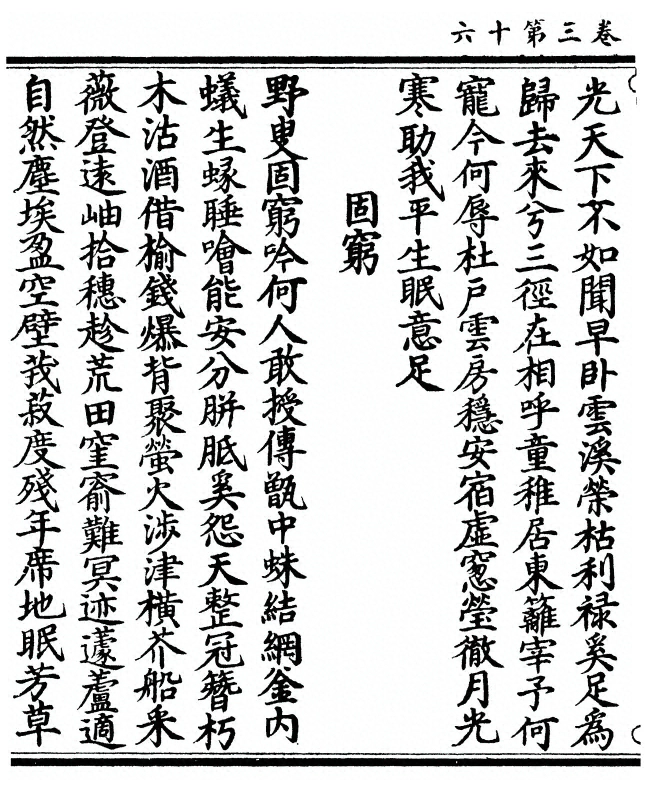 卷三第十六
光天下不如聞早卧雲溪榮枯利禄奚足爲
歸去來兮三徑在相呼童稚居東籬宰予何
寵今何辱杜戸雲房穩安宿虚窓瑩徹月光
寒助我平生眠意足
固窮
野叟固窮吟何人敢授傳甑中蛛結網釜内
蟻生蝝睡噲能安分胼胝奚怨天整冠簪朽
木沽酒借榆錢爆背聚螢火渉津横芥船采
薇登遠岫拾穗趁荒田窐窬難冥迹蘧蘆適
自然塵埃盈空壁菽度殘年席地眠芳草